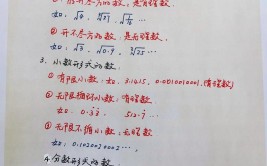 ①能开尽方的数,是有理数.
如: √4, ∛27,
②开不尽方的数,是无理数
如: √3, √0.9, ∛25 …
3、小数形式的数.
①有限小数: 如: 3.1415, 0.001001001.(有理数)
②无限循环小数: 有理数
如: 0.3̇2̇ 512.7̇ …
③无限不循环小数: 无理数
如: 0.1020030002…,
4.分数形式的数.